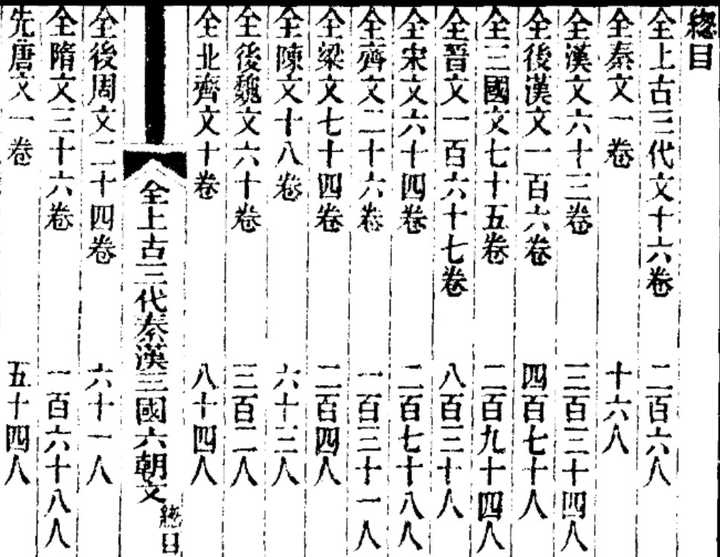 總目
全上古三代文十六卷 二百六人
全秦文一卷 十六人
全漢文六十三卷 三百三十四人
全後漢文一百六卷 四百七十人
全三國文七十五卷 二百九十四人
全晉文一百六十七卷 八百三十人
全宋文六十四卷 二百七十八人
全齊文二十六卷 一百三十一人
全梁文七十四卷 二百四人
全陳文十八卷 六十三人
全後魏文六十卷 三百二人
全北齊文十卷 八十四人
全上古三代秦漢三國六朝文 總目
全後周文二十四卷 六十一人
全隋文三十六卷 一百六十八人
先唐文一卷 五十四人